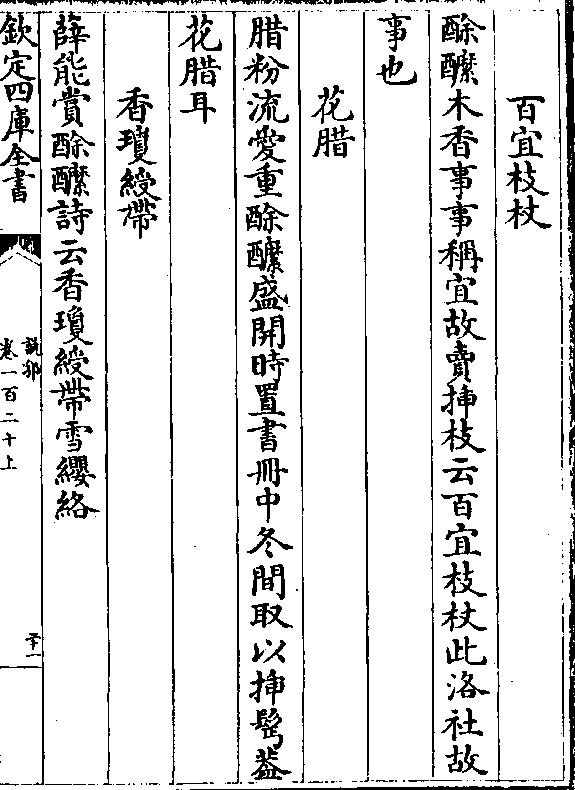 百宜枝杖
酴醿木香事事稱宜故賣揷枝云百宜枝杖此洛社故
事也
花腊
腊粉流愛重酴醿盛開時置書冊中冬間取以揷鬂葢
花腊耳
香瓊綬帶
薛能賞酴醿詩云香瓊綬帶雪纓絡
欽定四庫全書
說郛
卷一百二十上
二十一